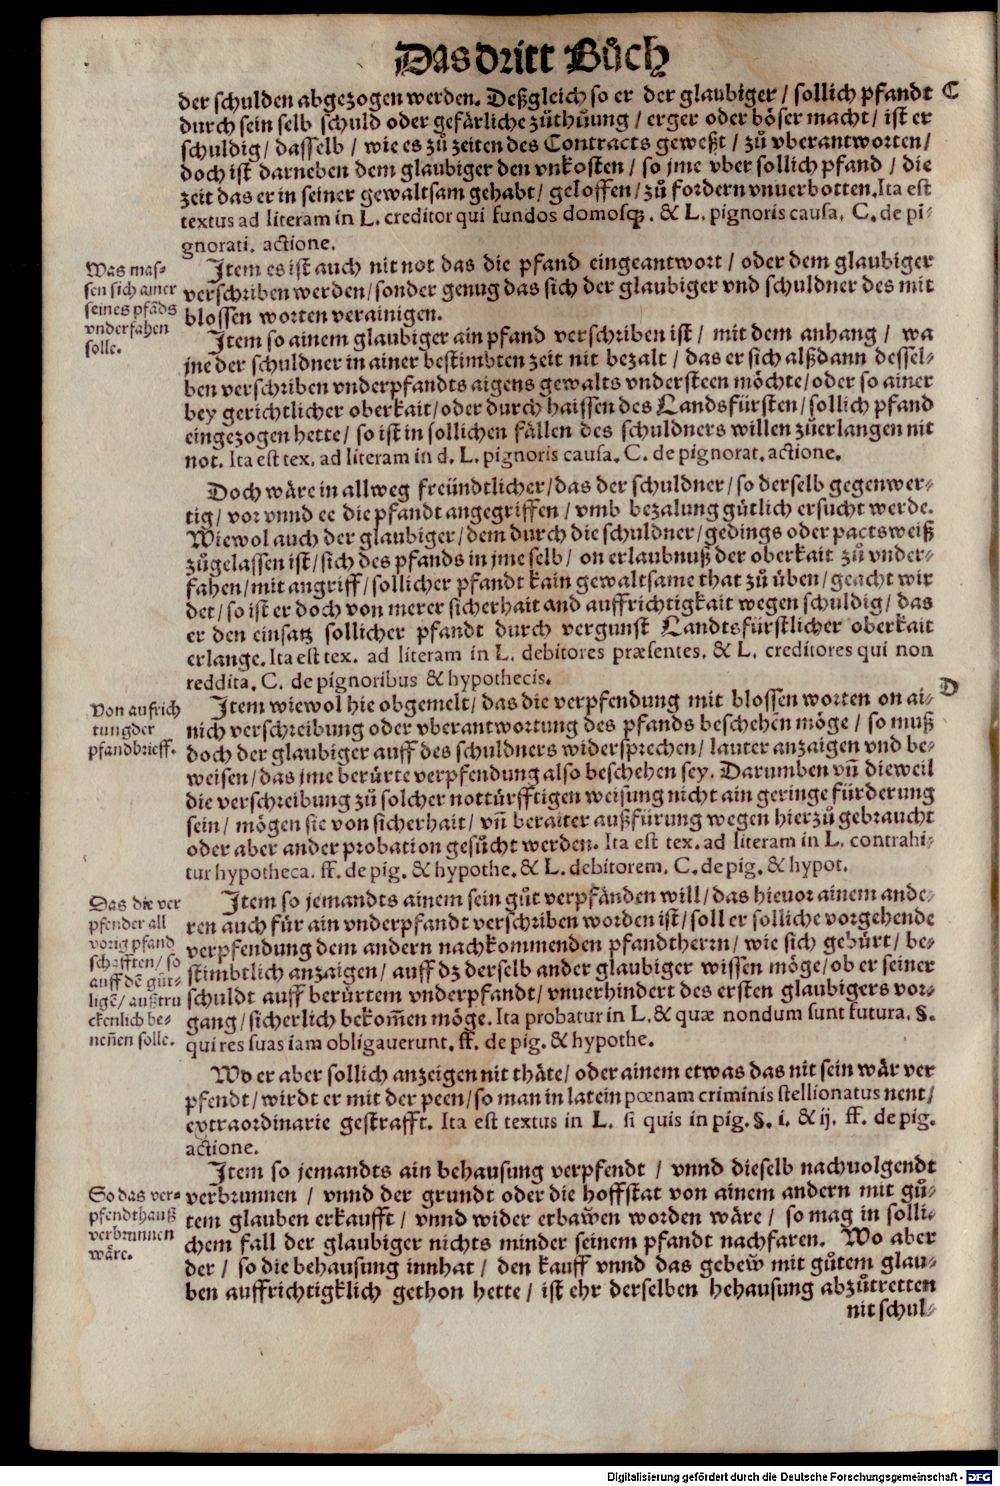 Das dritt Bůch
der schulden abgezogen werden. Deßgleich so er der glaubiger / sollich pfandt C
durch sein selb schuld oder gefärliche zůthůung / erger oder böser macht / ist er
schuldig / dasselb / wie es zů zeiten des Contracts geweßt / zů vberantworten /
doch ist darneben dem glaubiger den vnkosten / so jme vber sollich pfand / die
zeit das er in seiner gewaltsam gehabt / geloffen / zů fordern vnuerbotten. Ita est
textus ad literam in L. creditor qui fundos domosq;. & L. pignoris causa. C. de pi-
gnorati. actione.
Was mas-
sen sich ainer
seines pfāds
vnderfahen
solle.
Item es ist auch nit not das die pfand eingeantwort / oder dem glaubiger
verschriben werden / sonder genug das sich der glaubiger vnd schuldner des mit
blossen worten verainigen.
Item so ainem glaubiger ain pfand verschriben ist / mit dem anhang / wa
jne der schuldner in ainer bestimbten zeit nit bezalt / das er sich alßdann dessel-
ben verschriben vnderpfandts aigens gewalts vndersteen möchte / oder so ainer
bey gerichtlicher oberkait / oder durch haissen des Landsfürsten / sollich pfand
eingezogen hette / so ist in sollichen fällen des schuldners willen zůerlangen nit
not. Ita est tex. ad literam in d. L. pignoris causa. C. de pignorat. actione.
Doch wäre in allweg freündtlicher / das der schuldner / so derselb gegenwer-
tig / vor vnnd ee die pfandt angegriffen / vmb bezalung gůtlich ersucht werde.
Wiewol auch der glaubiger / dem durch die schuldner / gedings oder pactsweiß
zůgelassen ist / sich des pfands in jme selb / on erlaubnuß der oberkait zů vnder-
fahen / mit angriff / sollicher pfandt kain gewaltsame that zů üben / geacht wir
det / so ist er doch von merer sicherhait and auffrichtigkait wegen schuldig / das
er den einsatz sollicher pfandt durch vergunst Landtsfürstlicher oberkait
erlange. Ita est tex. ad literam in L. debitores præsentes. & L. creditores qui non
reddita. C. de pignoribus & hypothecis.
Von aufrich
tung der
pfandbrieff.
Item wiewol hie obgemelt / das die verpfendung mit blossen worten on ai- D
nich verschreibung oder vberantwortung des pfands beschehen möge / so můß
doch der glaubiger auff des schuldners widersprechen / lauter anzaigen vnd be-
weisen / das jme berůrte verpfendung also beschehen sey. Darumben vn̄ dieweil
die verschreibung zů solcher nottürfftigen weisung nicht ain geringe fürderung
sein / mögen sie von sicherhait / vn̄ beraiter außfürung wegen hierzů gebraucht
oder aber ander probation gesůcht werden. Ita est tex. ad literam in L. contrahi-
tur hypotheca. ff. de pig. & hypothe. & L. debitorem. C. de pig. & hypot.
Das die ver
pfender all
vorig pfand
schafften / so
auff dē gůt-
ligē / außtru
ckenlich be-
neñen solle.
Item so jemandts ainem sein gůt verpfänden will / das hieuor ainem ande-
ren auch für ain vnderpfandt verschriben worden ist / soll er solliche vorgehende
verpfendung dem andern nachkommenden pfandtherrn / wie sich gebůrt / be-
stimbtlich anzaigen / auff dz derselb ander glaubiger wissen möge / ob er seiner
schuldt auff berürtem vnderpfandt / vnuerhindert des ersten glaubigers vor-
gang / sicherlich bekom̄en möge. Ita probatur in L. & quæ nondum sunt futura. §.
qui res suas iam obligauerunt. ff. de pig. & hypothe.
Wo er aber sollich anzeigen nit thäte / oder ainem etwas das nit sein wär ver
pfendt / wirdt er mit der peen / so man in latein pœnam criminis stellionatus nent /
extraordinarie gestrafft. Ita est textus in L. si quis in pig. §. i. & ij. ff. de pig.
actione.
So das ver-
pfendthauß
verbrunnen
wäre.
Item so jemandts ain behausung verpfendt / vnnd dieselb nachuolgendt
verbrunnen / vnnd der grundt oder die hoffstat von ainem andern mit gů-
tem glauben erkaufft / vnnd wider erbaw̆en worden wäre / so mag in solli-
chem fall der glaubiger nichts minder seinem pfandt nachfaren. Wo aber
der / so die behausung innhat / den kauff vnnd das gebew̆ mit gůtem glau-
ben auffrichtigklich gethon hette / ist ehr derselben behausung abzůtretten
nit schul-
Digitalisierung gefördert durch die Deutsche Forschungsgemeinschaft - DFG